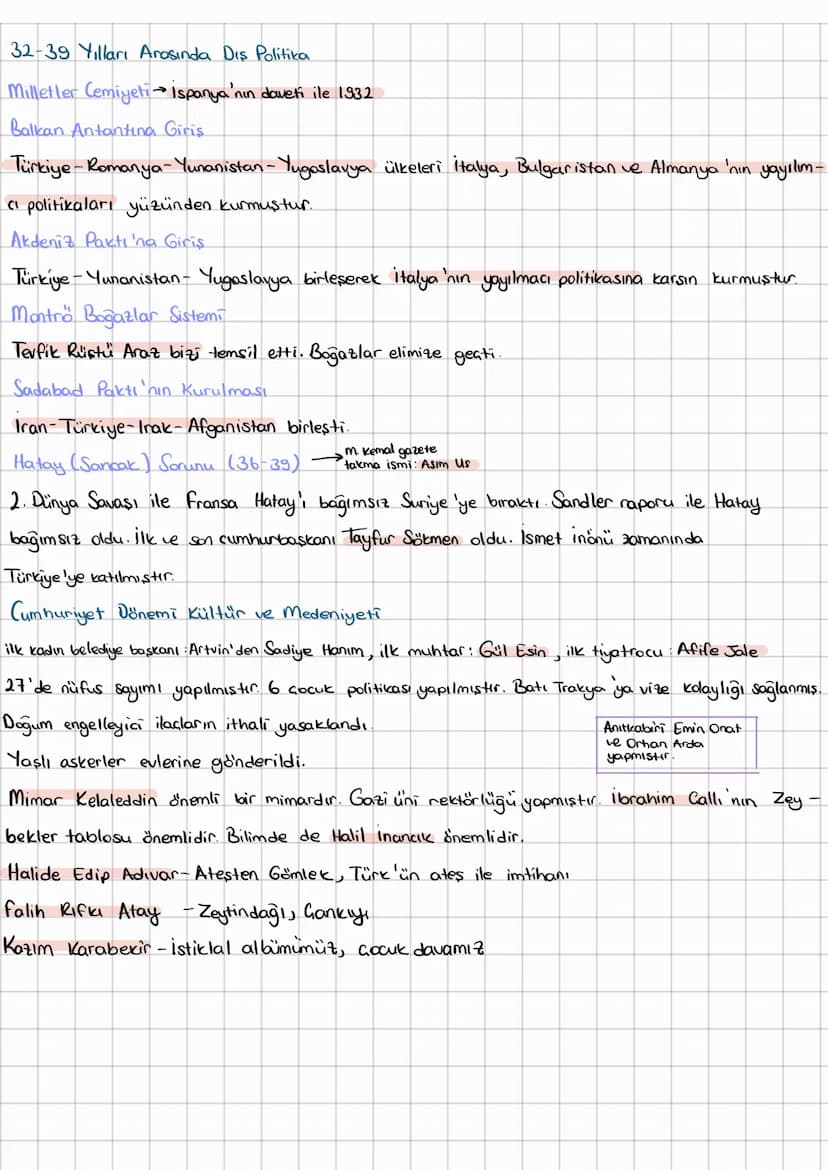 32-39 Yılları Arasında Dış Politika
Milletler Cemiyeti → İspanya'nın daveti ile 1932
Balkan Antantına Giriş
Türkiye-Romanya-Yunanistan-Yugoslavya ülkeleri İtalya, Bulgaristan ve Almanya'nın yayılm-
cı politikaları yüzünden kurmuştur.
Akdeniz Paktı'na Giriş
Türkiye-Yunanistan-Yugoslavya birleşerek İtalya'nın yayılmacı politikasına karsın kurmuştur.
Montrö Boğazlar Sistemi
Tevfik Rüştü Araz bizi temsil etti. Boğazlar elimize geçti.
Sadabad Paktı'nın Kurulması
İran-Türkiye-Irak-Afganistan birleşti.
Hatay (Sancak) Sorunu (36-39) → m. kemal gazete
takma ismi: Asım Us
2. Dünya Savaşı ile Fransa Hatay'ı bağımsız Suriye'ye bıraktı. Sandler raporu ile Hatay
bağımsız oldu. İlk ve son cumhurbaşkanı Tayfur Sökmen oldu. İsmet inönü zamanında
Türkiye'ye katılmıştır.
Cumhuriyet Dönemi Kültür ve Medeniyeti
ilk kadın belediye başkanı: Artvin'den Sadiye Hanım, ilk muhtar: Gül Esin, ilk tiyatrocu: Afife Jale
27'de nüfus sayımı yapılmıştır. 6 çocuk politikası yapılmıştır. Batı Trakya'ya vize kolaylığı sağlanmış.
Doğum engelleyici ilaçların ithali yasaklandı.
Yaşlı askerler evlerine gönderildi.
Anıtkabiri Emin Onat
ve Orhan Arda
yapmıştır.
Mimar Kelaleddin önemli bir mimardır. Gazi üni rektörlüğü yapmıştır. İbrahim Çallı'nın Zey-
bekler tablosu önemlidir. Bilimde de Halil İnancık önemlidir.
Halide Edip Adıvar- Ateşten Gömlek, Türk'ün ateş ile imtihanı
Falih Rıfkı Atay - Zeytindağı, Çankıyı
Kazım Karabekir - İstiklal albümümüz, çocuk davamız